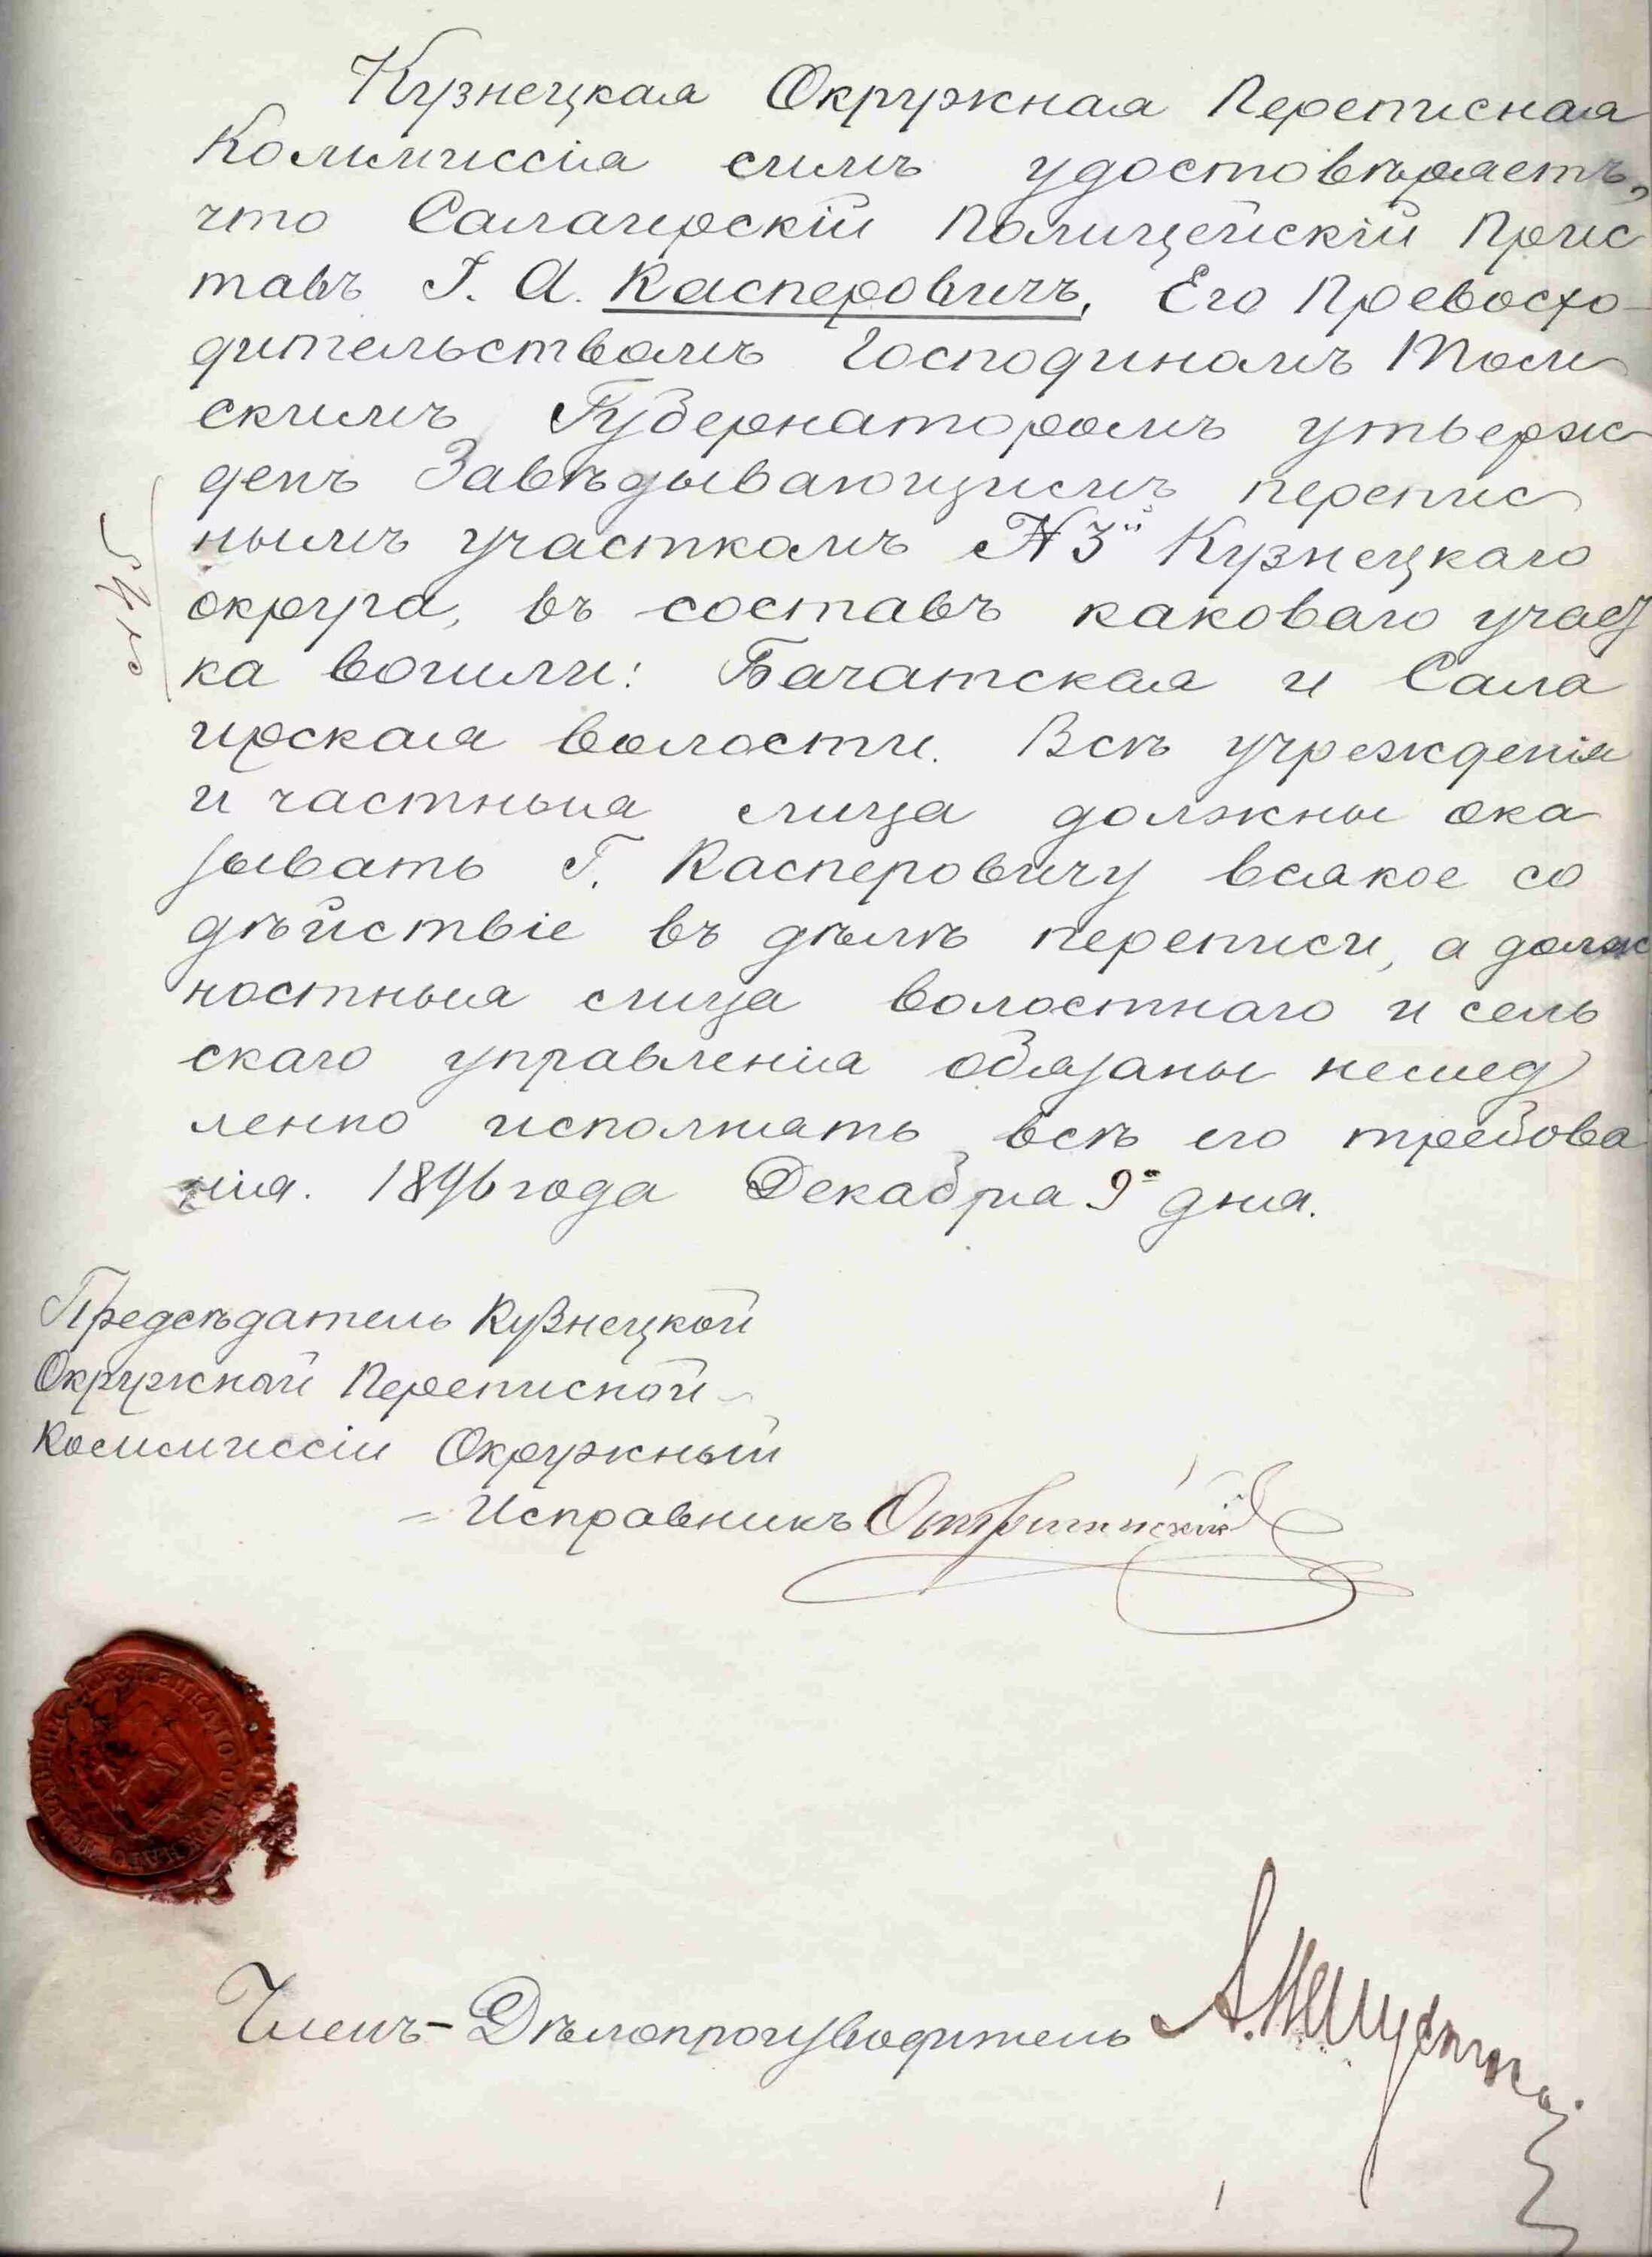 Кузнецкая Окружная Переписная
Коммиссія симъ удостовѣряетъ,
что Салаирскій Полицейскій Прис
тавъ Г. А. Касперовичъ, Его Превосхо-
дительствомъ Господиномъ Том
скимъ Губернаторомъ утверж
денъ Завѣдывающимъ перепис
нымъ участкомъ № 3й Кузнецкаго
округа, въ составъ каковаго участ
ка вошли: Бачатская и Сала
ирская волости. Всѣ учрежденія
и частныя лица должны ока
зывать Г. Касперовичу всякое со
дѣйствіе въ дѣлѣ переписи, а долж
ностныя лица волостнаго и сель
скаго управленія обязаны немед
ленно исполнять всѣ его требова
нія. 1896 года Декабря 9 дня.
Предсѣдатель Кузнецкой
Окружной Переписной
Коммиссіи Окружный
Исправникъ
Членъ-Дѣлопроизводитель